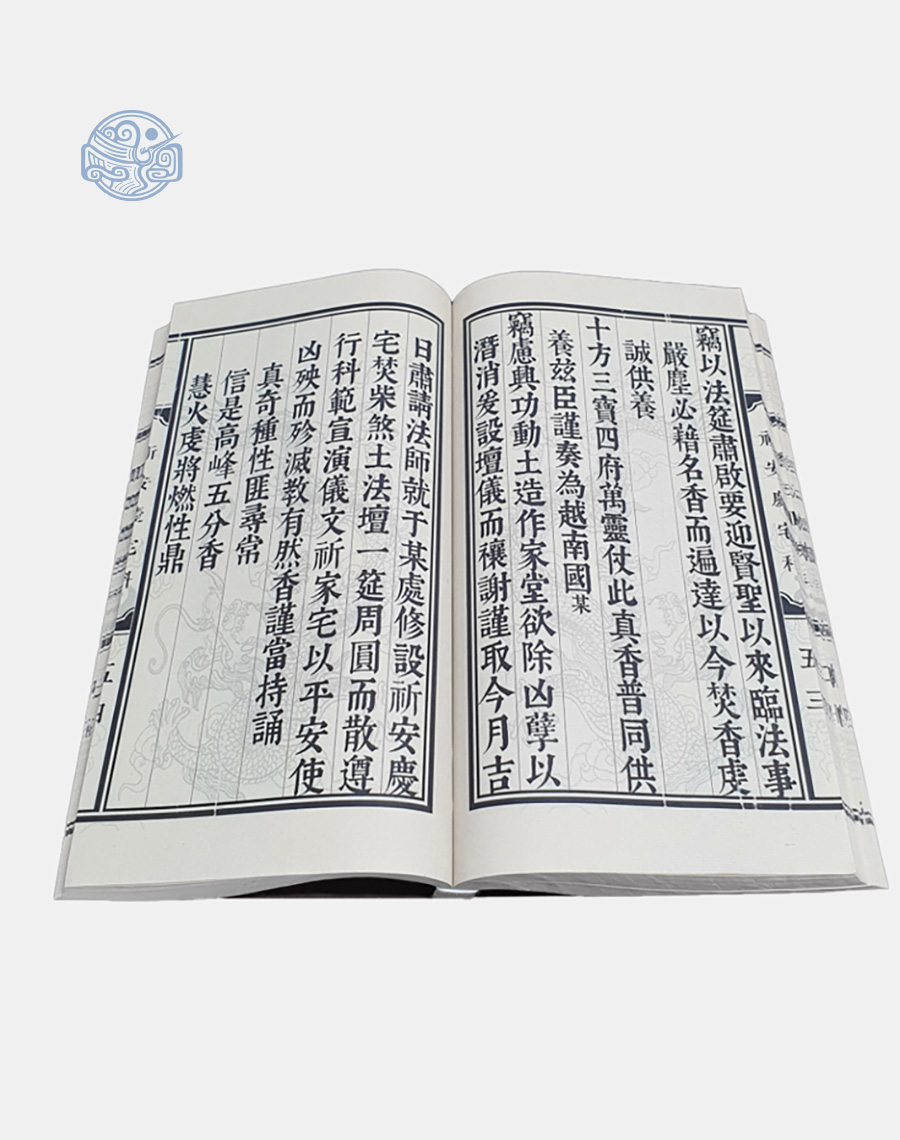 竊以法筵肅啟要迎賢聖以來臨法事
嚴塵必藉名香而遍達以今焚香虔
誠供養
十方三寶四府萬靈仗此真香普同供
養茲臣謹奏為越南國某
竊慮興功動土造作家堂欲除凶孽以
潛消爰設壇儀而禳謝謹取今月吉
日肅請法師就于某處修設祈安慶
宅焚柴煞土法壇一筵周圓而散遵
行科範宣演儀文祈家宅以平安使
凶殃而殄滅教有然香謹當持誦
真奇種性匪尋常
信是高峰五分香
慧火虔將燃性鼎
五三